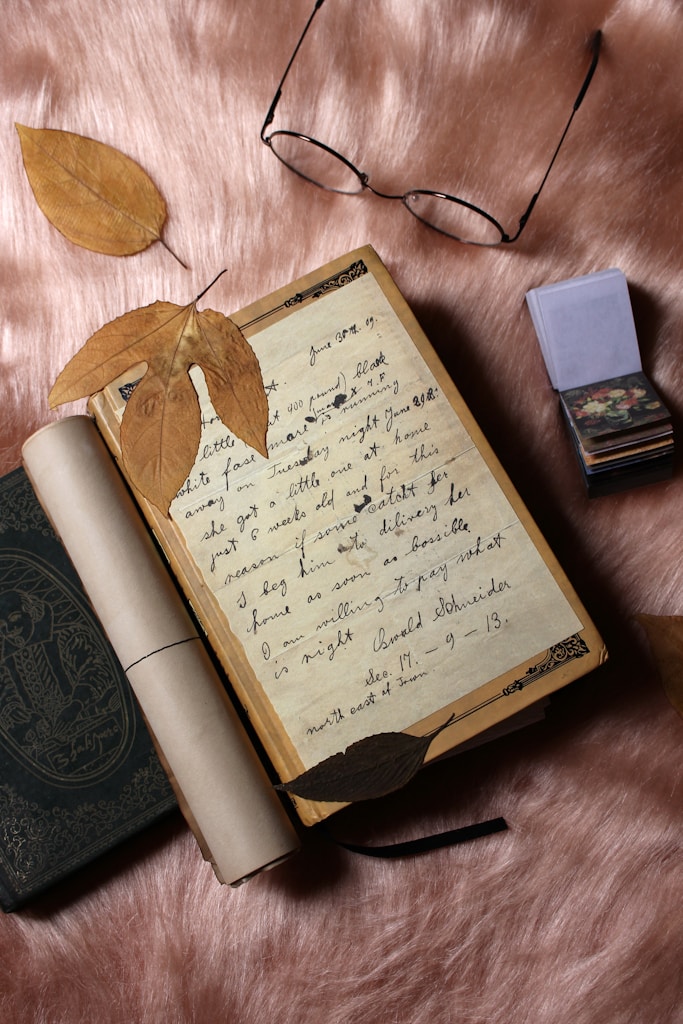 June 30th. 09.
little 400 pound) black
white fase mare is running
away on Tuesday night June 29th.
she got a little one at home
just 6 weeks old and for this
reason if some catcht her
I beg him to dilivery her
home as soon as bossible
I am willing to pay what
is right Oswald Schneider
Sec. 17. – 9 – 13.
north east of